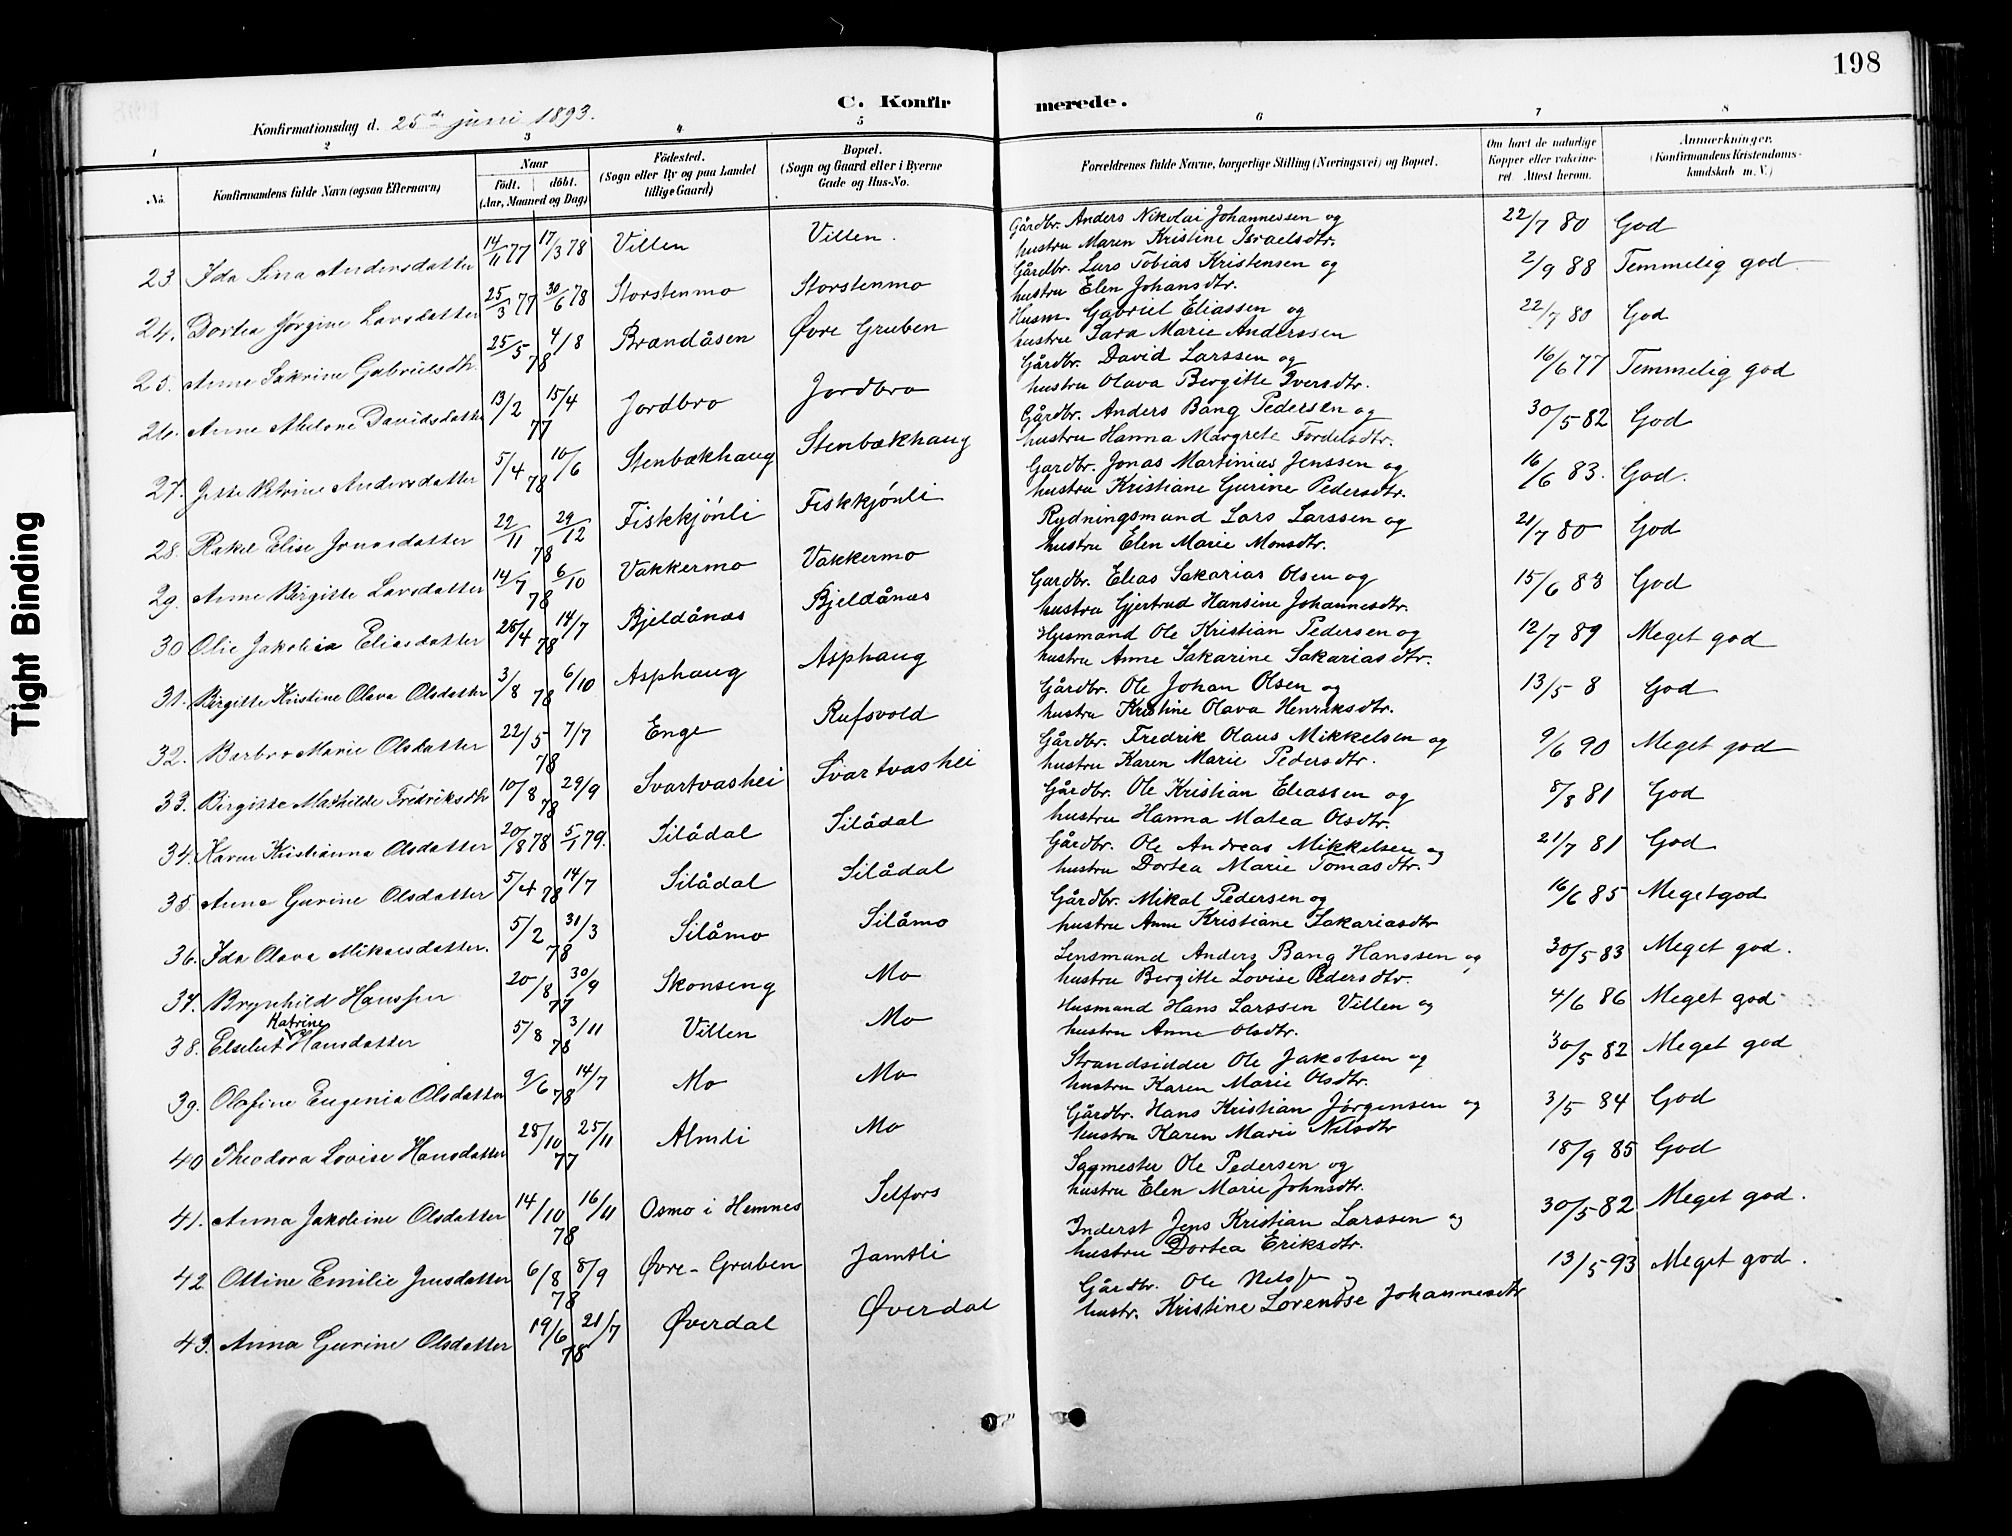 198
C. Konfirmerede.
Konfirmationsdag d. 25de juni 1893.
1 2 3 4 5 6 7 8
No.
Konfirmandens fulde Navn (ogsaa Efternavn)
Naar
født. døbt.
(Aar, Maaned og Dag)
Fødested.
(Sogn eller By og paa Landet
tillige Gaard)
Bopæl.
(Sogn og Gaard eller i Byerne
Gade og Hus-No.
Forældrenes fulde Navne, borgerlige Stilling (Næringsvei) og Bopæl.
Om havt de naturlige
Kopper eller vakcine-
ret. Attest herom.
Anmærkninger.
(Konfirmandens Kristendoms-
kundskab m. V.)
23 Ida Lina Andersdatter 14/11 77 17/3 78 Villen Villen. Gårdbr. Anders Nikolai Johannessen og 22/7 80 God
hustru Maren Kristine Israelsdtr.
24. Dortea Jørgine Larsdatter 25/3 77 30/6 78 Storstenmo Storstenmo Gårdbr. Lars Tobias Kristensen og 2/9 88 Temmelig god
hustru Elen Johansdtr.
25. Anne Sakrine Gabrielsdtr. 25/5 4/8 78 Brandåsen Øvre Gruben Husm. Gabriel Eliassen og 22/7 80 God
hustru Sara Marie Anderssen
26. Anne Abelone Davidsdatter 13/2 15/4 77 Jordbro Jordbro Gårdbr. David Larssen og 16/6 77 Temmelig god
hustru Olava Bergitte Iversdtr.
27. Jette Petrine Andersdatter 5/4 10/6 78 Stenbækhaug Stenbækhaug Gårdbr. Anders Bang Pedersen og 30/5 82 God
hustru Hanna Margrete Fordelsdtr.
28. Rakel Elise Jonasdatter 22/11 29/12 78 Fiskkjónli Fiskkjónli Gardbr. Jonas Martinius Jenssen og 16/6 83. God.
hustru Kristiane Gurine Pedersdtr.
29. Anne Birgitte Larsdatter 14/7 6/10 78 Vakkermo Vakkermo Rydningsmand Lars Larssen og 21/7 80 God
hustru Elen Marie Monsdtr.
30 Olie Jakobea Eliasdatter 28/4 14/7 78 Bjeldånæs Bjeldånæs Gardbr. Elias Sakarias Olsen og 15/6 83 God
hustru Gjertrud Hansine Johannesdtr.
31. Birgitte Kristine Olava Olsdatter 3/8 6/10 78 Asphaug Asphaug Husmand Ole Kristian Pedersen og 12/7 89 Meget god
hustru Anne Sakarine Sakariasdtr.
32. Barbro Marie Olsdatter 22/5 7/7 78 Enge Rufsvold Gårdbr. Ole Johan Olsen og 13/5 8 God
hustru Kristine Olava Henriksdtr.
33. Birgitte Mathilde Fredriksdtr 10/8 29/9 78 Svartvashei Svartvashei Gårdbr. Fredrik Olaus Mikkelsen og 9/6 90 Meget god
hustru Karen Marie Pedersdtr.
34. Karen Kristianna Olsdatter 20/8 78 5/1 79. Silådal Silådal Gårdbr. Ole Kristian Eliassen og 8/8 81 God
hustru Hanna Matea Olsdtr.
35. Anna Gurine Olsdatter 5/4 78 14/7 Silådal Silådal Gårdbr. Ole Andreas Mikkelsen og 21/7 81 God
hustru Dortea Marie Tomasdtr.
36. Ida Olava Mikalsdatter. 5/2 31/3 78 Silåmo Silåmo Gårdbr. Mikal Pedersen og 16/6 85 Meget god
hustru Anne Kristiane Sakariasdtr
37. Brynhild Hanssen 20/8 30/9 77 Skonseng Mo Lensmand Anders Bang Hanssen og 30/5 83 Meget god.
hustru Bergitte Lovise Pedersdtr.
38. Elsebet Katrine Hansdatter 5/8 3/11 78 Villen Mo Husmand Hans Larssen Villen og 4/6 86 Meget god
hustru Anne Olsdtr.
39. Olafine Eugenia Olsdatter 9/6 14/7 78 Mo Mo Strandsidder Ole Jakobsen og 30/5 82 Meget god
hustru Karen Marie Olsdtr.
40 Theodora Lovise Hansdatter 28/10 25/11 77 Almli Mo Gårdbr. Hans Kristian Jørgensen og 3/5 84 God
hustru Karen Marie Nilsdtr
41. Anna Jakobine Olsdatter 14/10 16/11 78 Osmo i Hemnes Selfors Sagmester Ole Pedersen og 18/9 85 God
hustru Elen Marie Johnsdtr.
42 Ottine Emilie Jensdatter 6/8 8/9 78 Øvre-Gruben Jamtli Inderst Jens Kristian Larssen og 30/5 82 Meget god.
hustru Dortea Eriksdtr.
43. Anna Gurine Olsdatter 19/6 21/7 78 Øverdal Øverdal Gårdbr. Ole Nilsen og 13/5 93 Meget god.
hustr. Kristine Lorentse Johannesdtr
Tight Binding